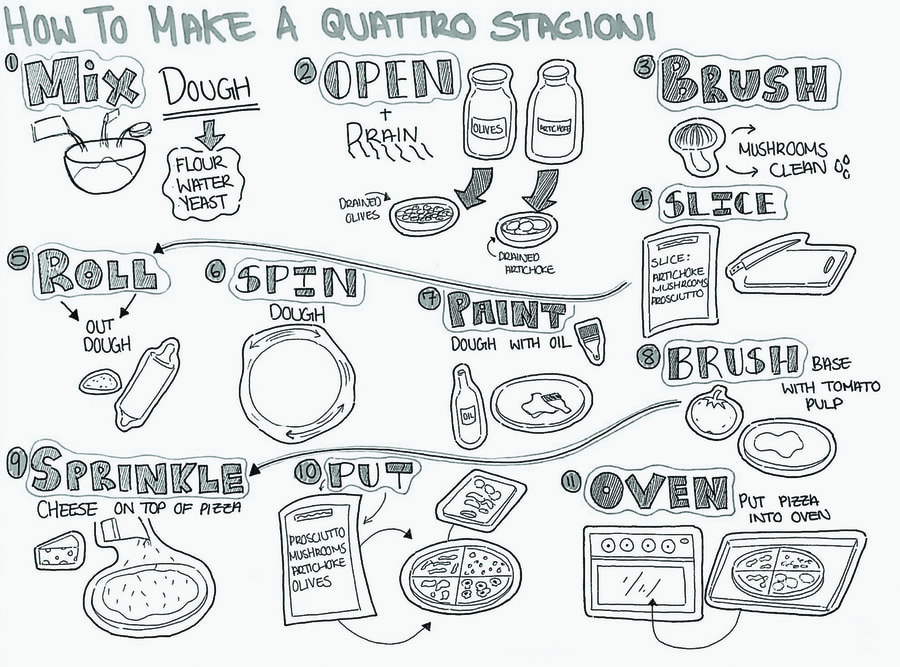 HOW TO MAKE A QUATTRO STAGIONI
1 MIX
DOUGH
FLOUR
WATER
YEAST
2 OPEN
+
DRAIN
OLIVES
ARTICHOKE
DRAINED
OLIVES
DRAINED
ARTICHOKE
3 BRUSH
MUSHROOMS
CLEAN
4 SLICE
SLICE:
ARTICHOKE
MUSHROOMS
PROSCIUTTO
5 ROLL
OUT
DOUGH
6 SPIN
DOUGH
7 PAINT
DOUGH WITH OIL
OIL
8 BRUSH BASE
WITH TOMATO
PULP
9 SPRINKLE
CHEESE ON TOP OF PIZZA
10 PUT
PROSCIUTTO
MUSHROOMS
ARTICHOKE
OLIVES
11 OVEN PUT PIZZA
INTO OVEN